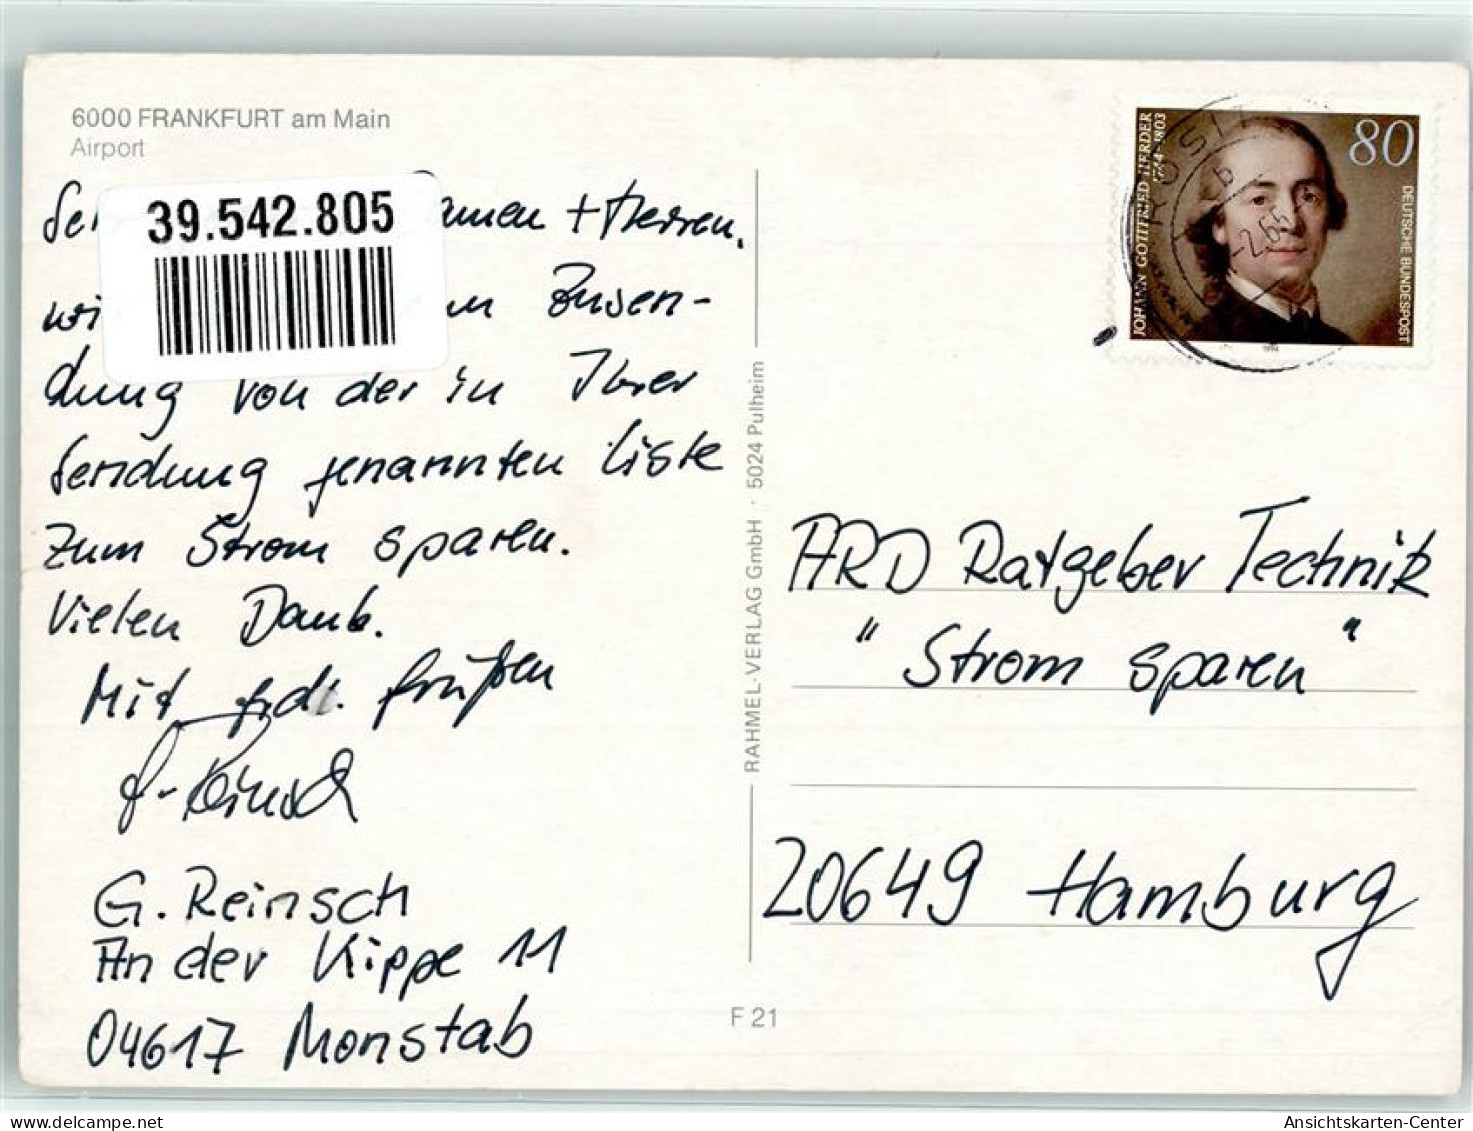 6000 FRANKFURT am Main
Airport
39.542.805
Damen + Herren,
wi Zusen-
dung von der in Ihrer
Sendung genannten Liste
zum Strom sparen.
Vielen Dank.
Mit frdl. Grüßen
G. Reinsch
An der Kippe 11
04617 Monstab
RAHMEL-VERLAG GmbH · 5024 Pulheim
F 21
JOHANN GOTTFRIED HERDER
1744-1803
80
DEUTSCHE BUNDESPOST
1994
ARD Ratgeber Technik
"Strom sparen"
20649 Hamburg
Ansichtskarten-Center